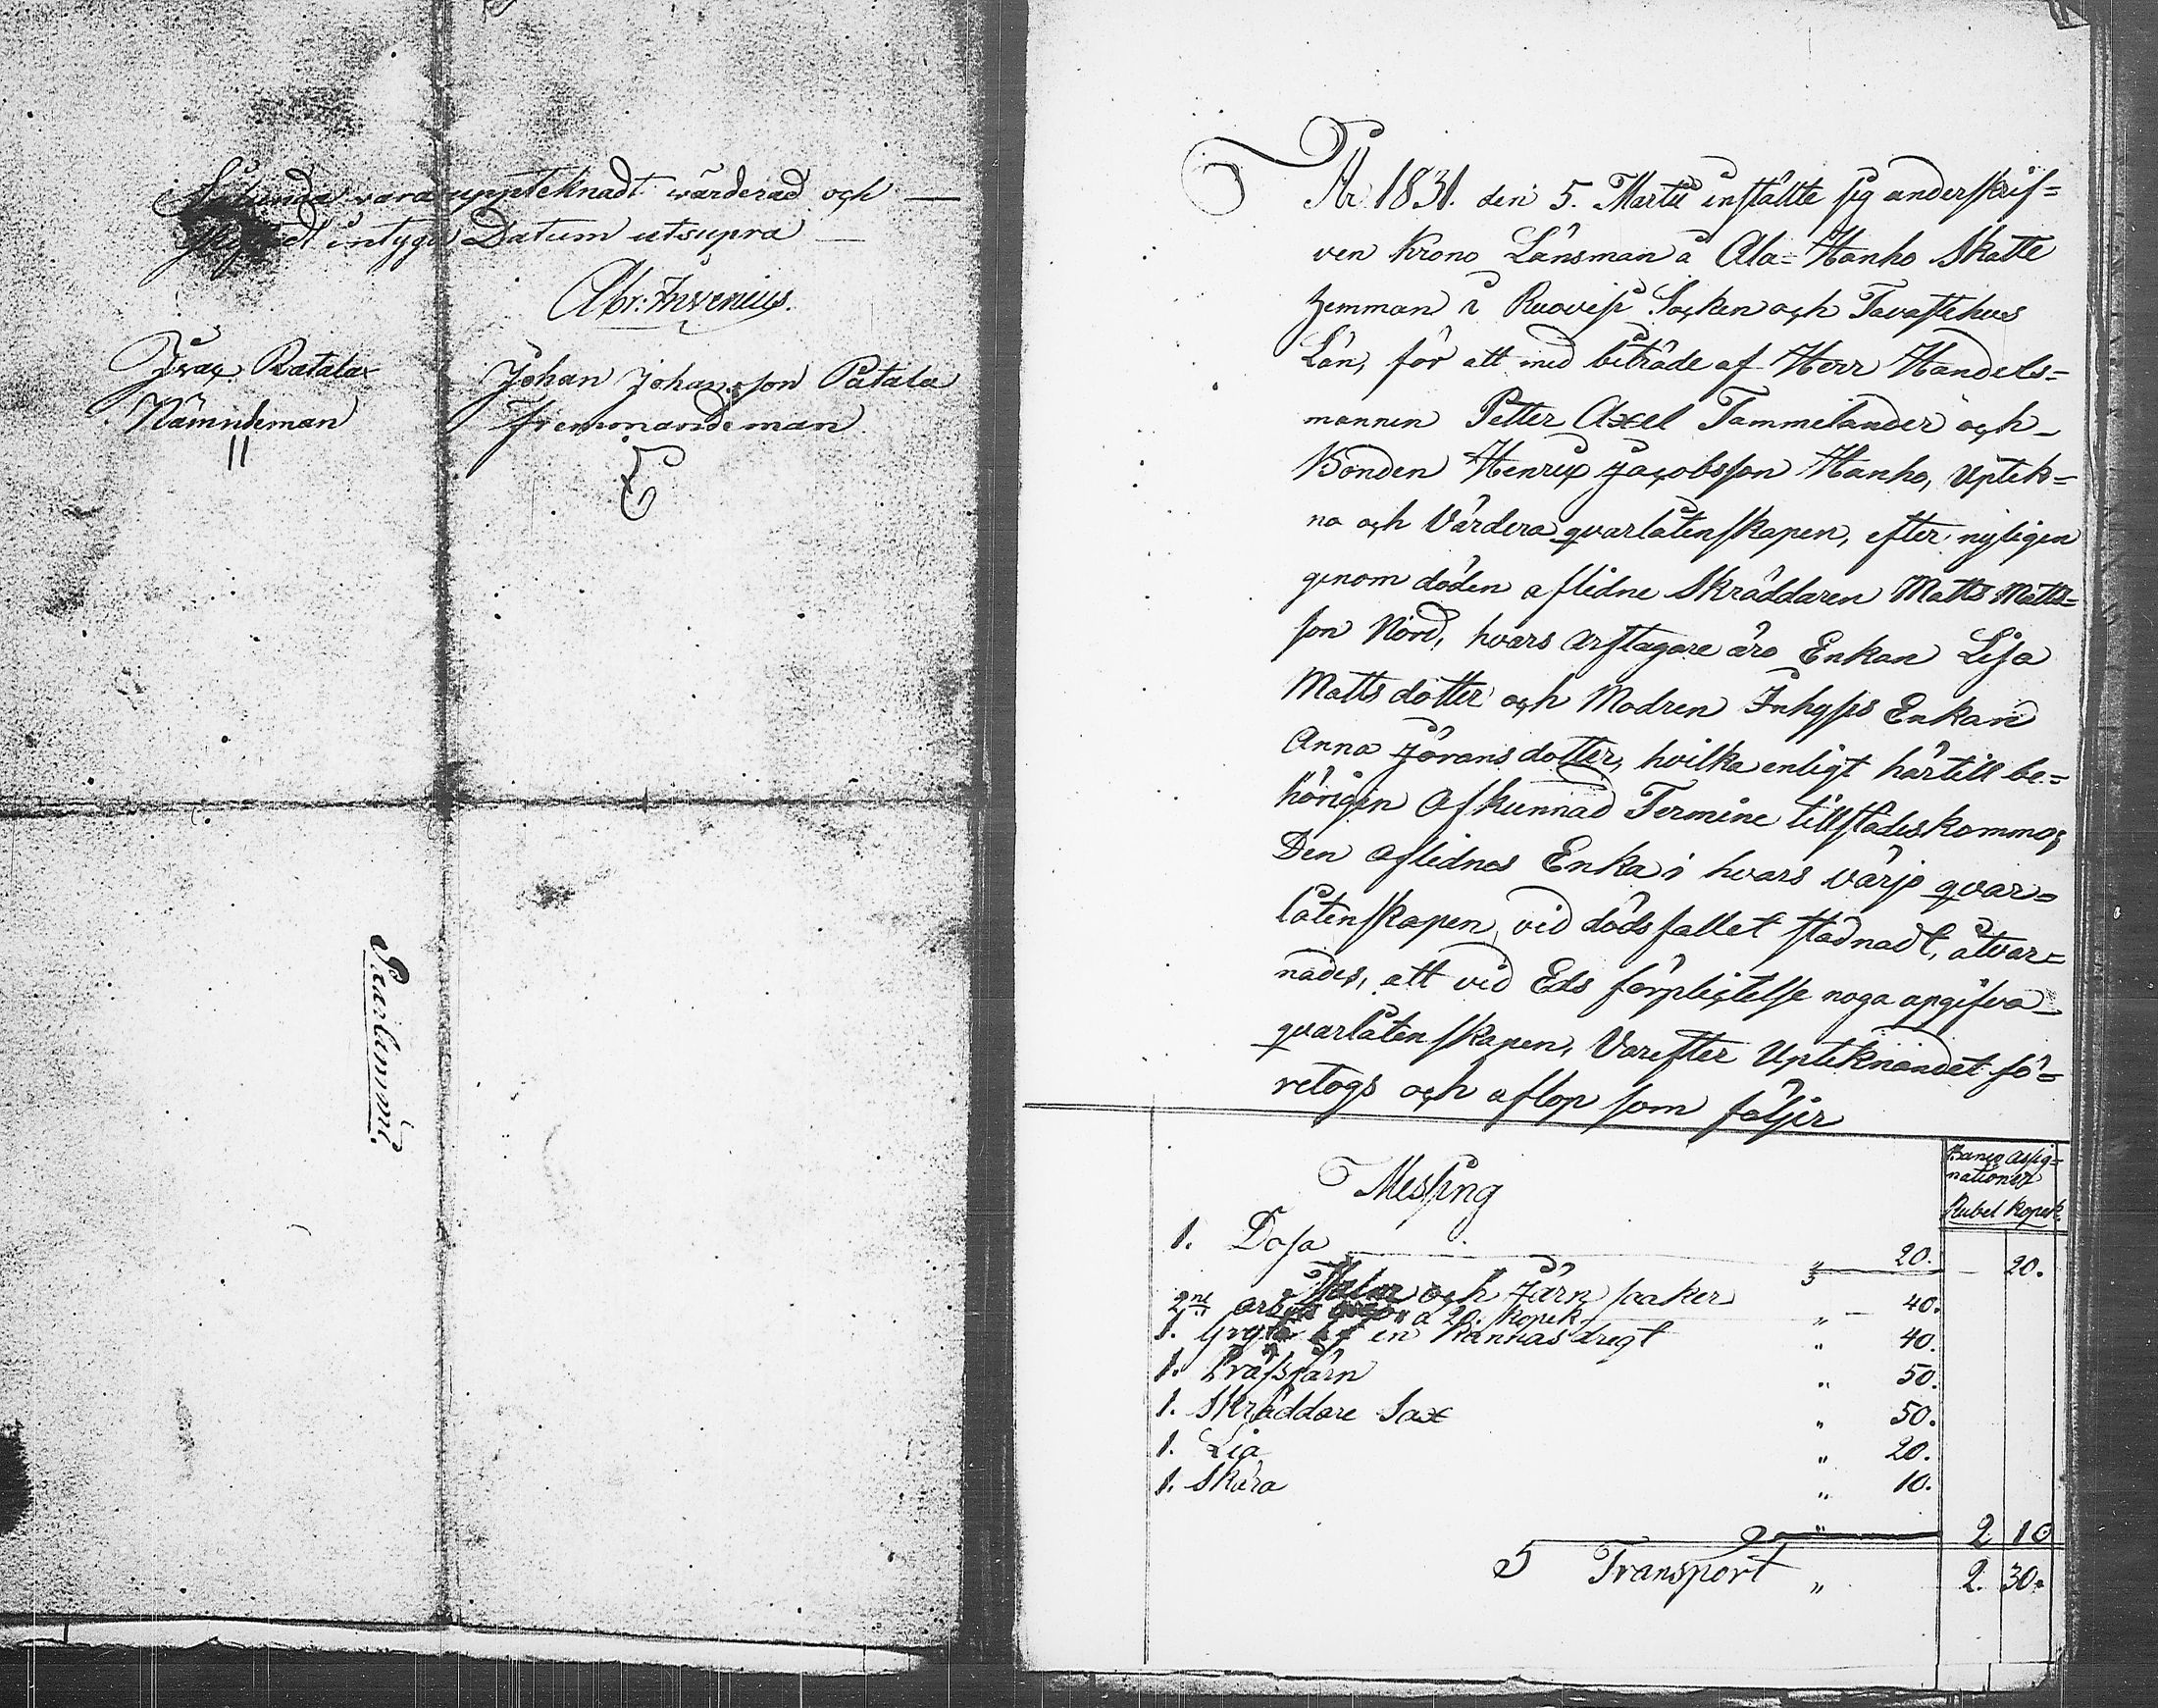 Sålunda vara uppteknadt värderad och
intyga Datum utsupra
Abr: Invenius.
Isac Ratala
Nämndeman
Johan Johansson Patala
Nämndeman
Är 1831. den 5. Martii instälte sig underskrif=
ven Krono Länsman å Ala=Hanho Skatte
hemman i Ruovesi Socken och Tavastehus
Län, för att med biträde af Herr Handels=
mannen Petter Axel Tammelander och
Bonden Henric Jacobsson Hanho, Uptek=
na och Värdera qvarlåtenskapen, efter nyligen
genom döden aflidne Skräddaren Matts Matts=
son Nord, hvars Arftagare äro Enkan Lisa
Matts dotter och Modren Inhyses Enkan
Anna Jörans dotter, hvilka enligt härtill be=
hörigen Afkunnad Termine tillstädeskommo;
Den Aflidnes Enka i hvars värjo qvar=
låtenskapen vid dödsfallet stadnadt, åtvar=
nades, att vid Eds förplictelse noga apgifva
qvarlåtenskapen, Varefter Upteknandet fö=
retogs och aflop som följer
Banco Assig=
nationer
Rubel Kopek.
Messing
1. Dosa " 20. — 20.
Malm och Järn saker
2ne a 20. Kopek " — 40.
1. Gryta af en Kannas dregt " 40.
1. Präfsjärn " 50.
1. Skräddare Sax " 50.
1. Lia " 20.
1. Skära " 10.
" 2 10
Transport " 2. 30.